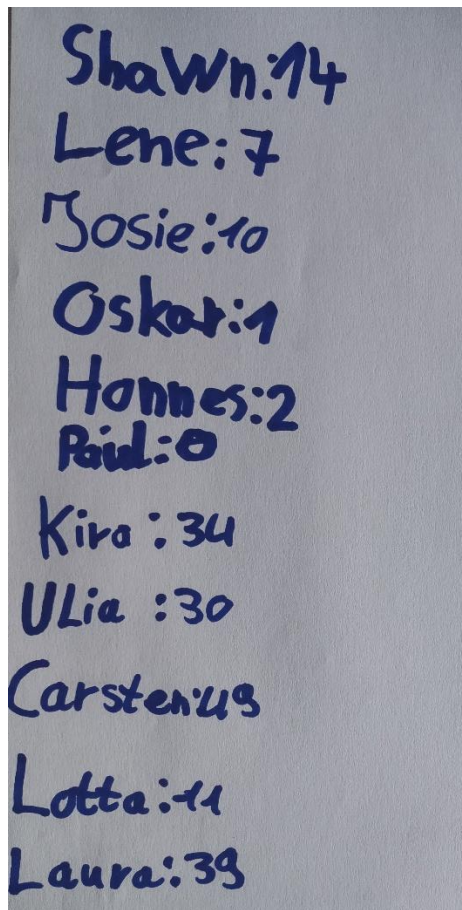 Shawn:14
Lene:7
Josie:10
Oskar:1
Hannes:2
Paul:0
Kira:34
ULia :30
Carsten:49
Lotta:11
Laura:39